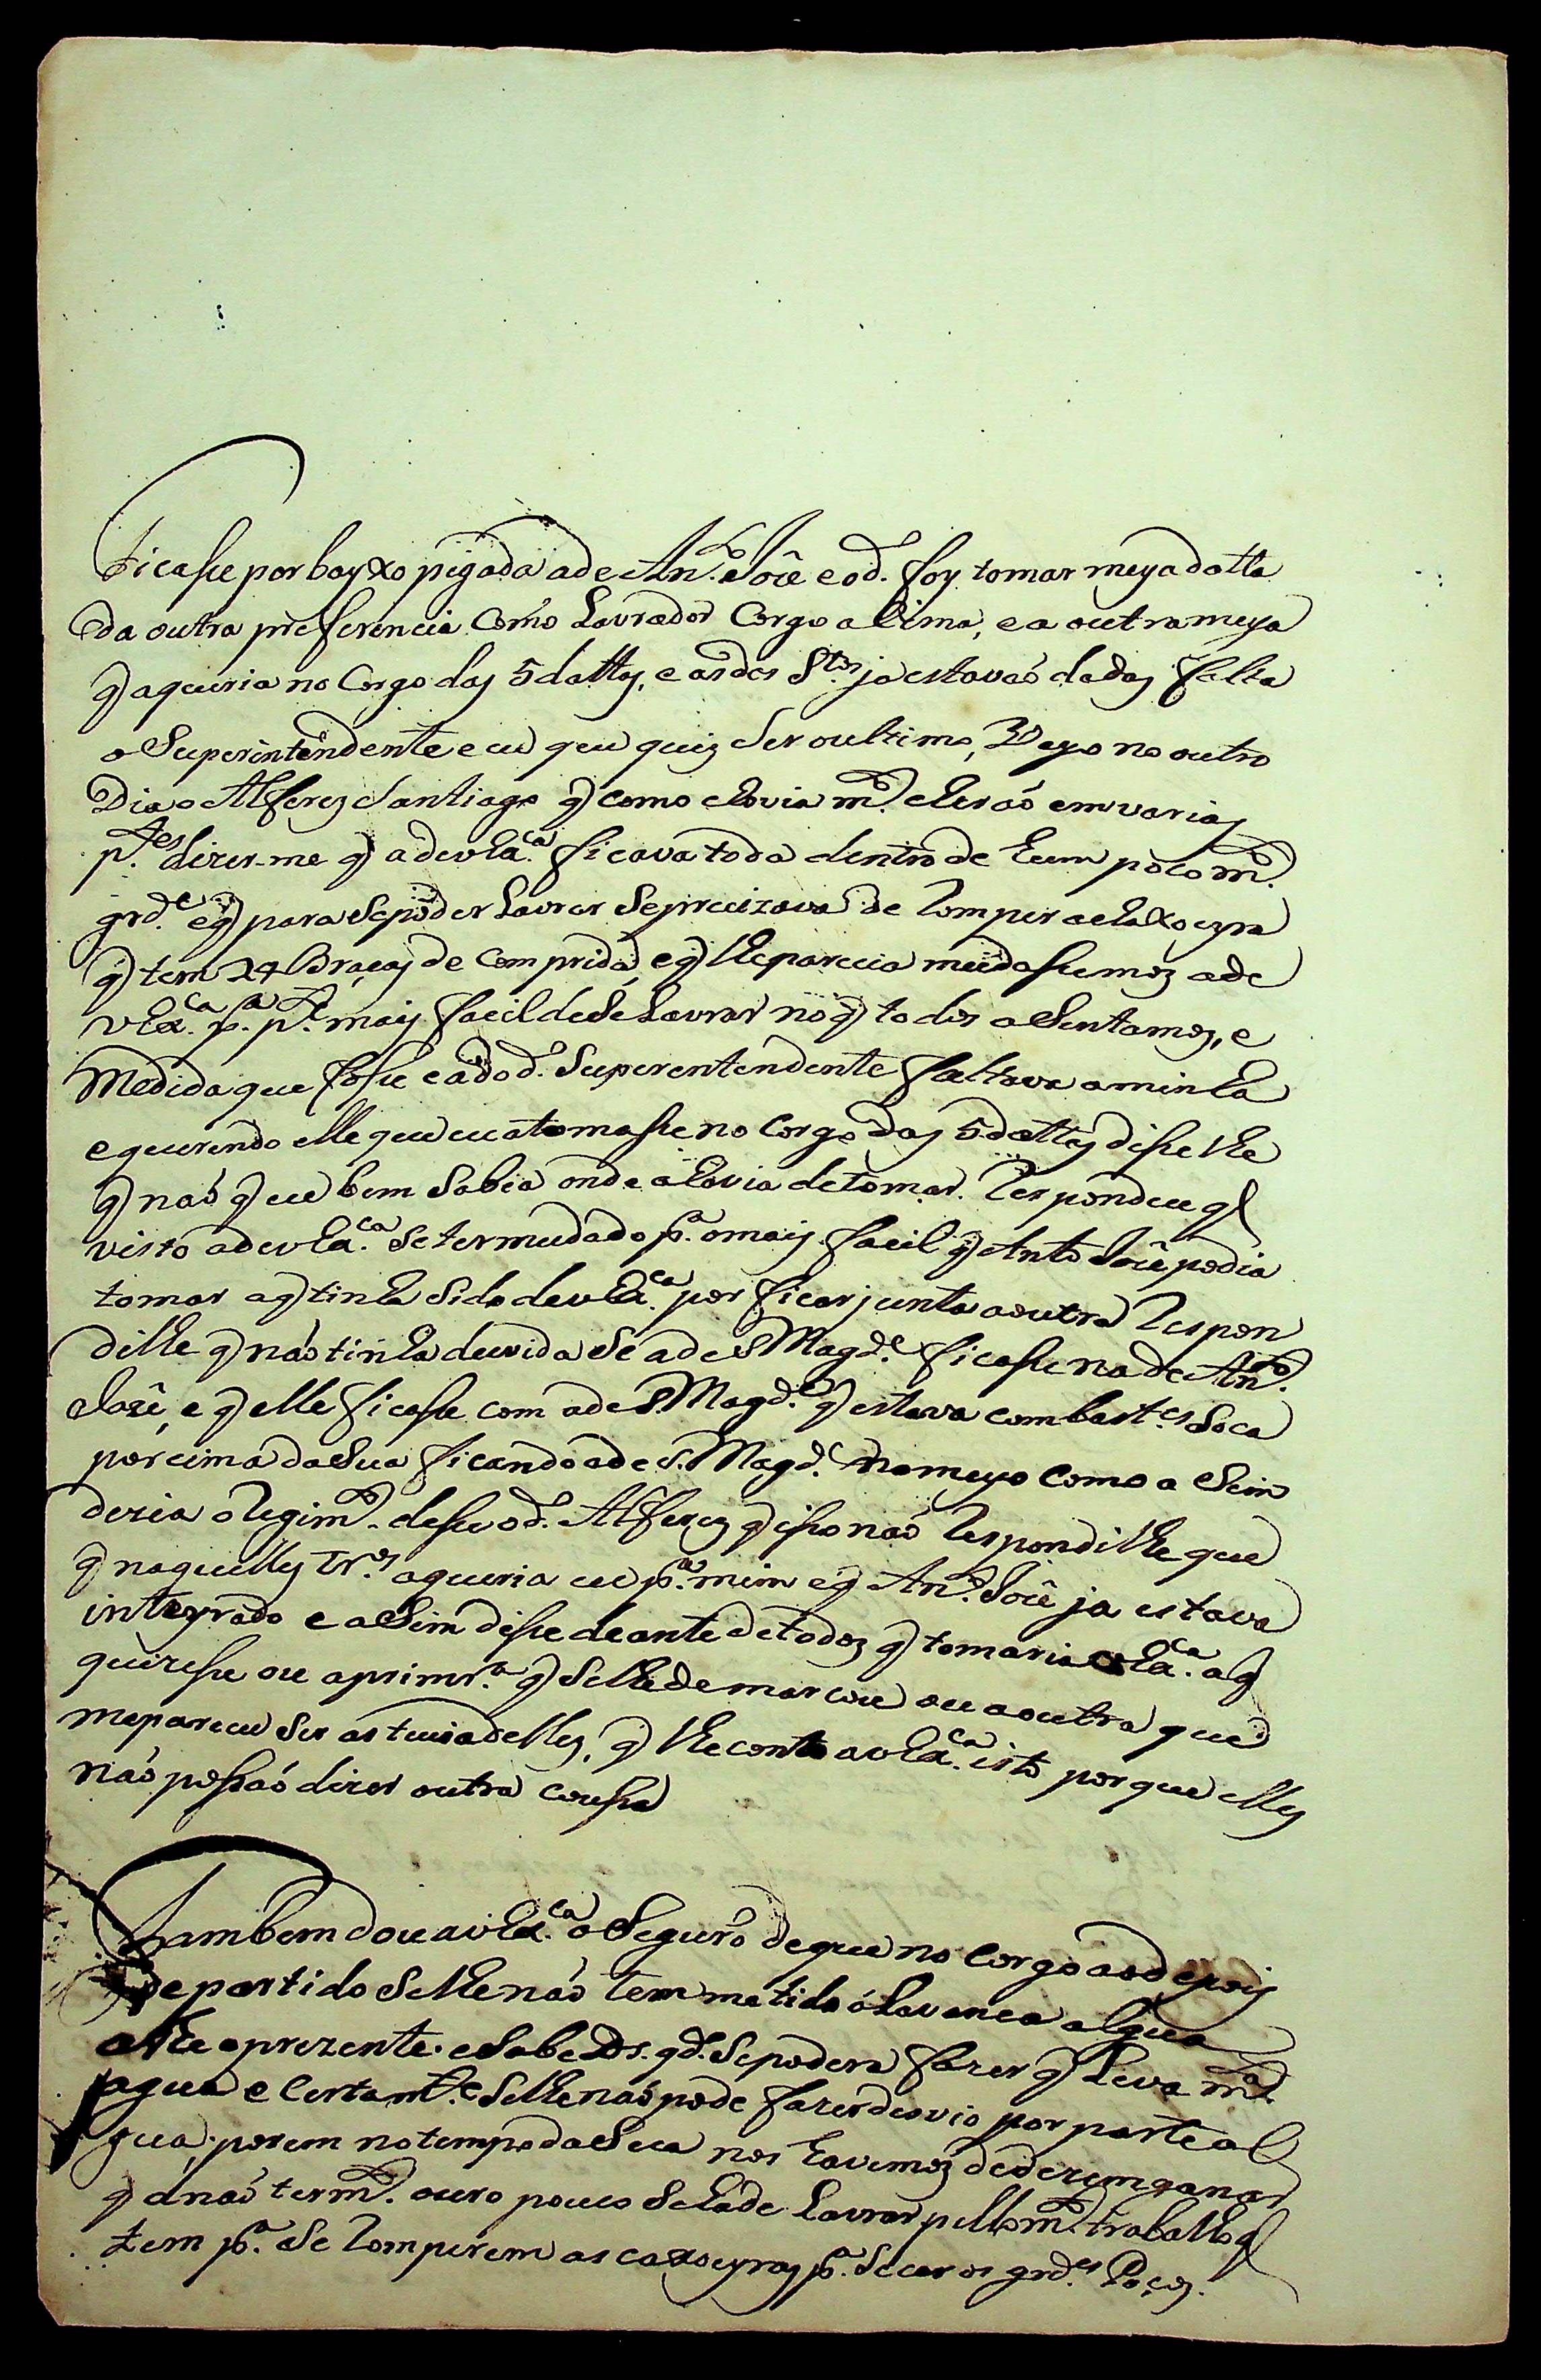 ficasse por bayxo pegada a de An.to Joze e o d.o foy tomar meya datta
da outra preferencia como Lavrador Corgo asima, e a outra meya
q̃ a queria no Corgo das 5 dattas, e as dos S.tos ja estavaó dadas falta
o Superintendente e eu q eu quiz ser o ultimo, Veyo no outro
Dia o Alferez Santiago q̃ como havia m.to chersó em varias
p.tes dizer-me q̃ a de vEx.ca ficava toda dentro de hum poço m.to
grd.e e q̃ para se poder Lavrar se precizava de Romper a Caxoeyra
q̃ tem 24 Braças de comprida, e q̃ lhe parecia mudassemoz a de
vEx.ca p.a p.te mais facil de se Lavrar no q̃ todos asentamoz, e
Medida que fosse e a do d.o Superentendente faltava a minha
e querendo elle que eu a tomasse no Corgo das 5 dattas disse lhe
q̃ naó q̃ eu bem sabia onde a havia de tomar. Respondeu q̃
visto a de vEx.ca se ter mudado p.a o mais facil q̃ Anto Joze podia
tomar a q̃ tinha sido de vEx.ca por ficar junta a outra Respon
dilhe q̃ naó tinha duvida se a de S Magd.e ficasse na de An.to
Jozê, e q̃ elle ficasse com a de S. Magd.e q̃ estava com bast.es Soca
por cima da sua ficando a de S. Magd.e no meyo como asim
dezia o Regim.to disse o d.o Alferez q̃ isso naó Respondi lhe que
q̃ naquelles tr.os a queria eu p.a mim e q̃ An.to Joze ja estava
integrado e asim disse deante de todoz q̃ tomaria vEx.ca a q̃
quizesse ou a primr.a q̃ se lhe demarcou ou a outra que
me pareceu ser astucia delles, q̃ lhe conto a vEx.ca isto porque elles
naó possaó dizer outra cousa
Tambem dou a vEx.ca o Seguro de que no Corgo ao depois
de partido se lhe naó tem metido álavanca algũa
athe o prezente. e Sabe Ds. qd.o se podera fazer q̃ Leva m.ta
agua e certam.te se lhe naó pode fazer desvio por parte al
gũa, porem no tempo da Seca nos havemoz de dezemganar
q̃ á naó ter m.to ouro pouco se hade Lavrar pello m.to trabalho q̃
tem p.a se Romperem as caxoeyras p.a secar os grd.es Poçoz.